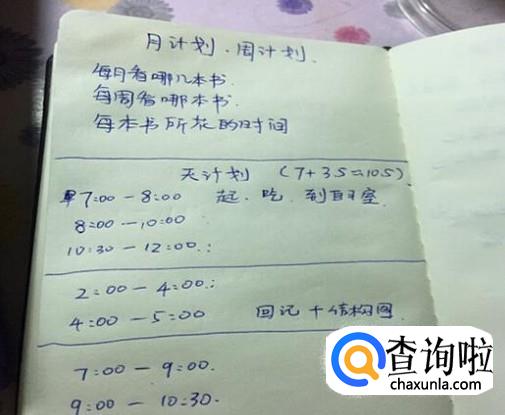 月计划．周计划．
每月看哪几本书．
每周看哪本书．
每本书所花的时间
天计划 （7+3.5=10.5）
早7:00－8:00 起．吃．到自习室．
8:00－10:00
10:30－12:00．:
2:00－4:00．:
4:00－5:00 回记＋结构图．
7:00－9:00．
9:00－10:30．
查询啦
chaxunla.com